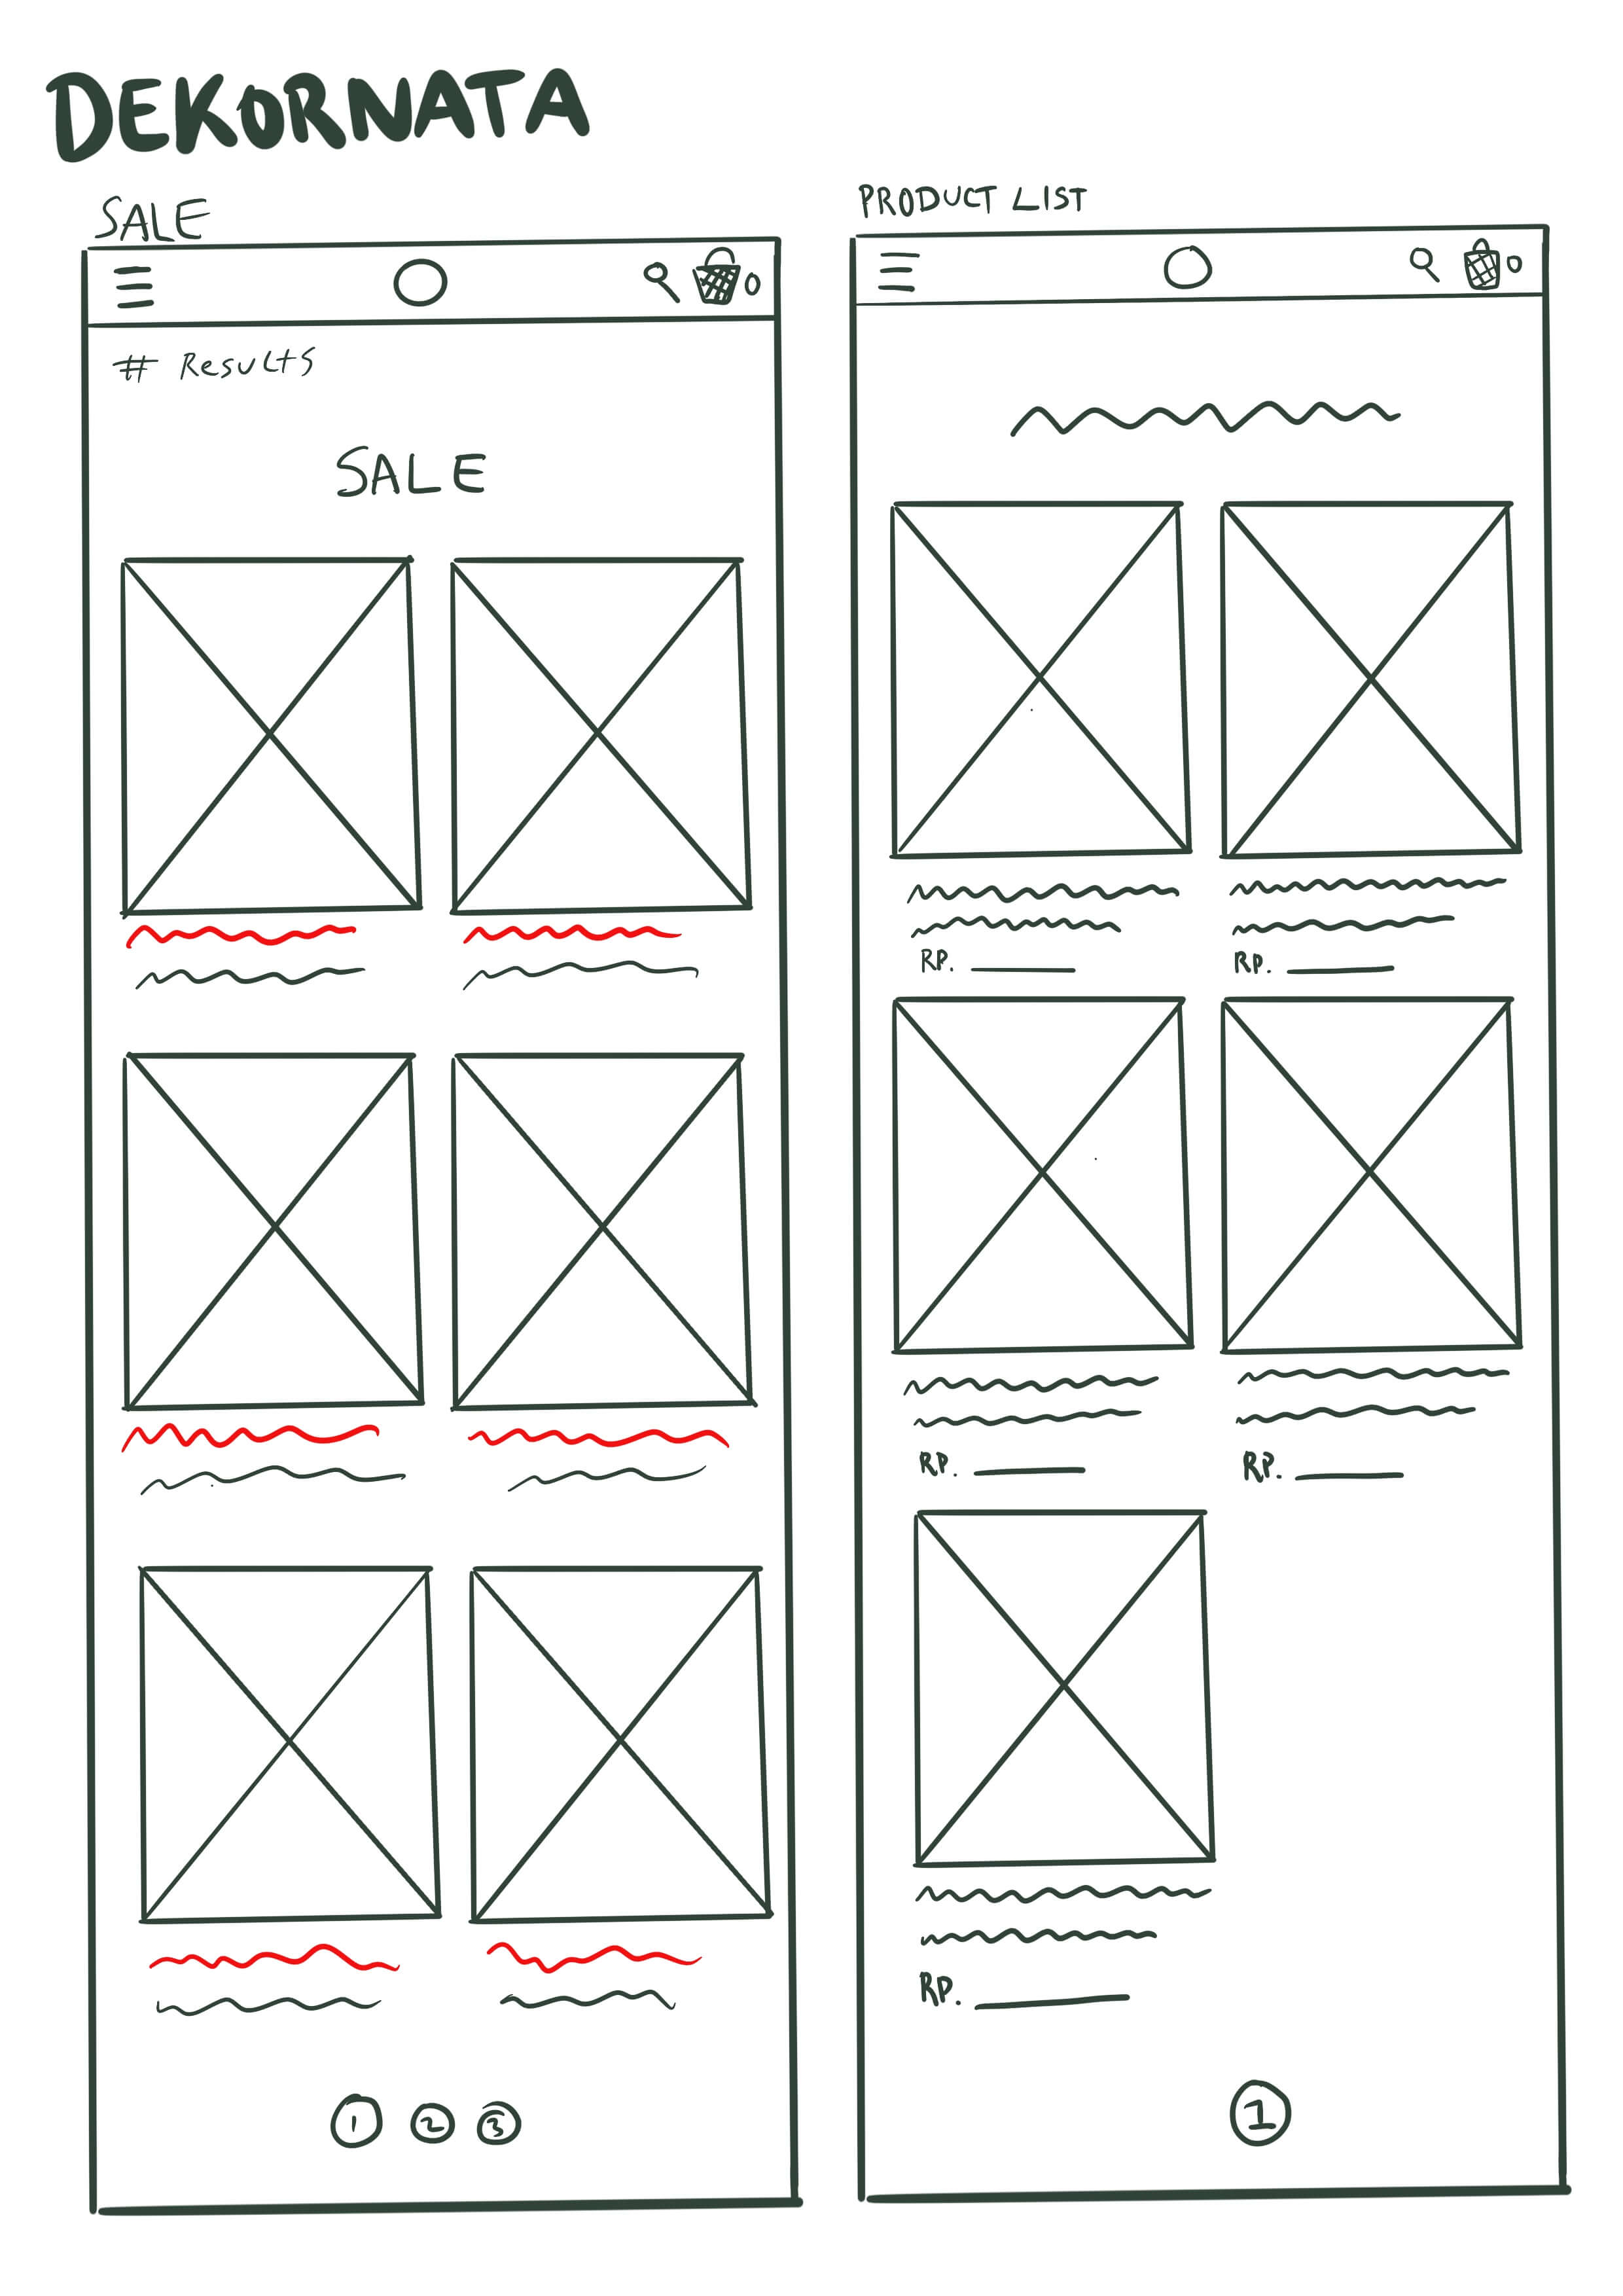 DEKORNATA
SALE
0
# RESULTS
SALE
1 2 3
PRODUCT LIST
0
RP. RP.
RP. RP.
RP.
1